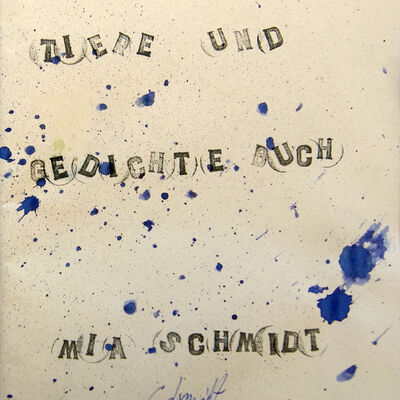 TIERE UND
GEDICHTE BUCH
MIA SCHMIDT
Schmidt